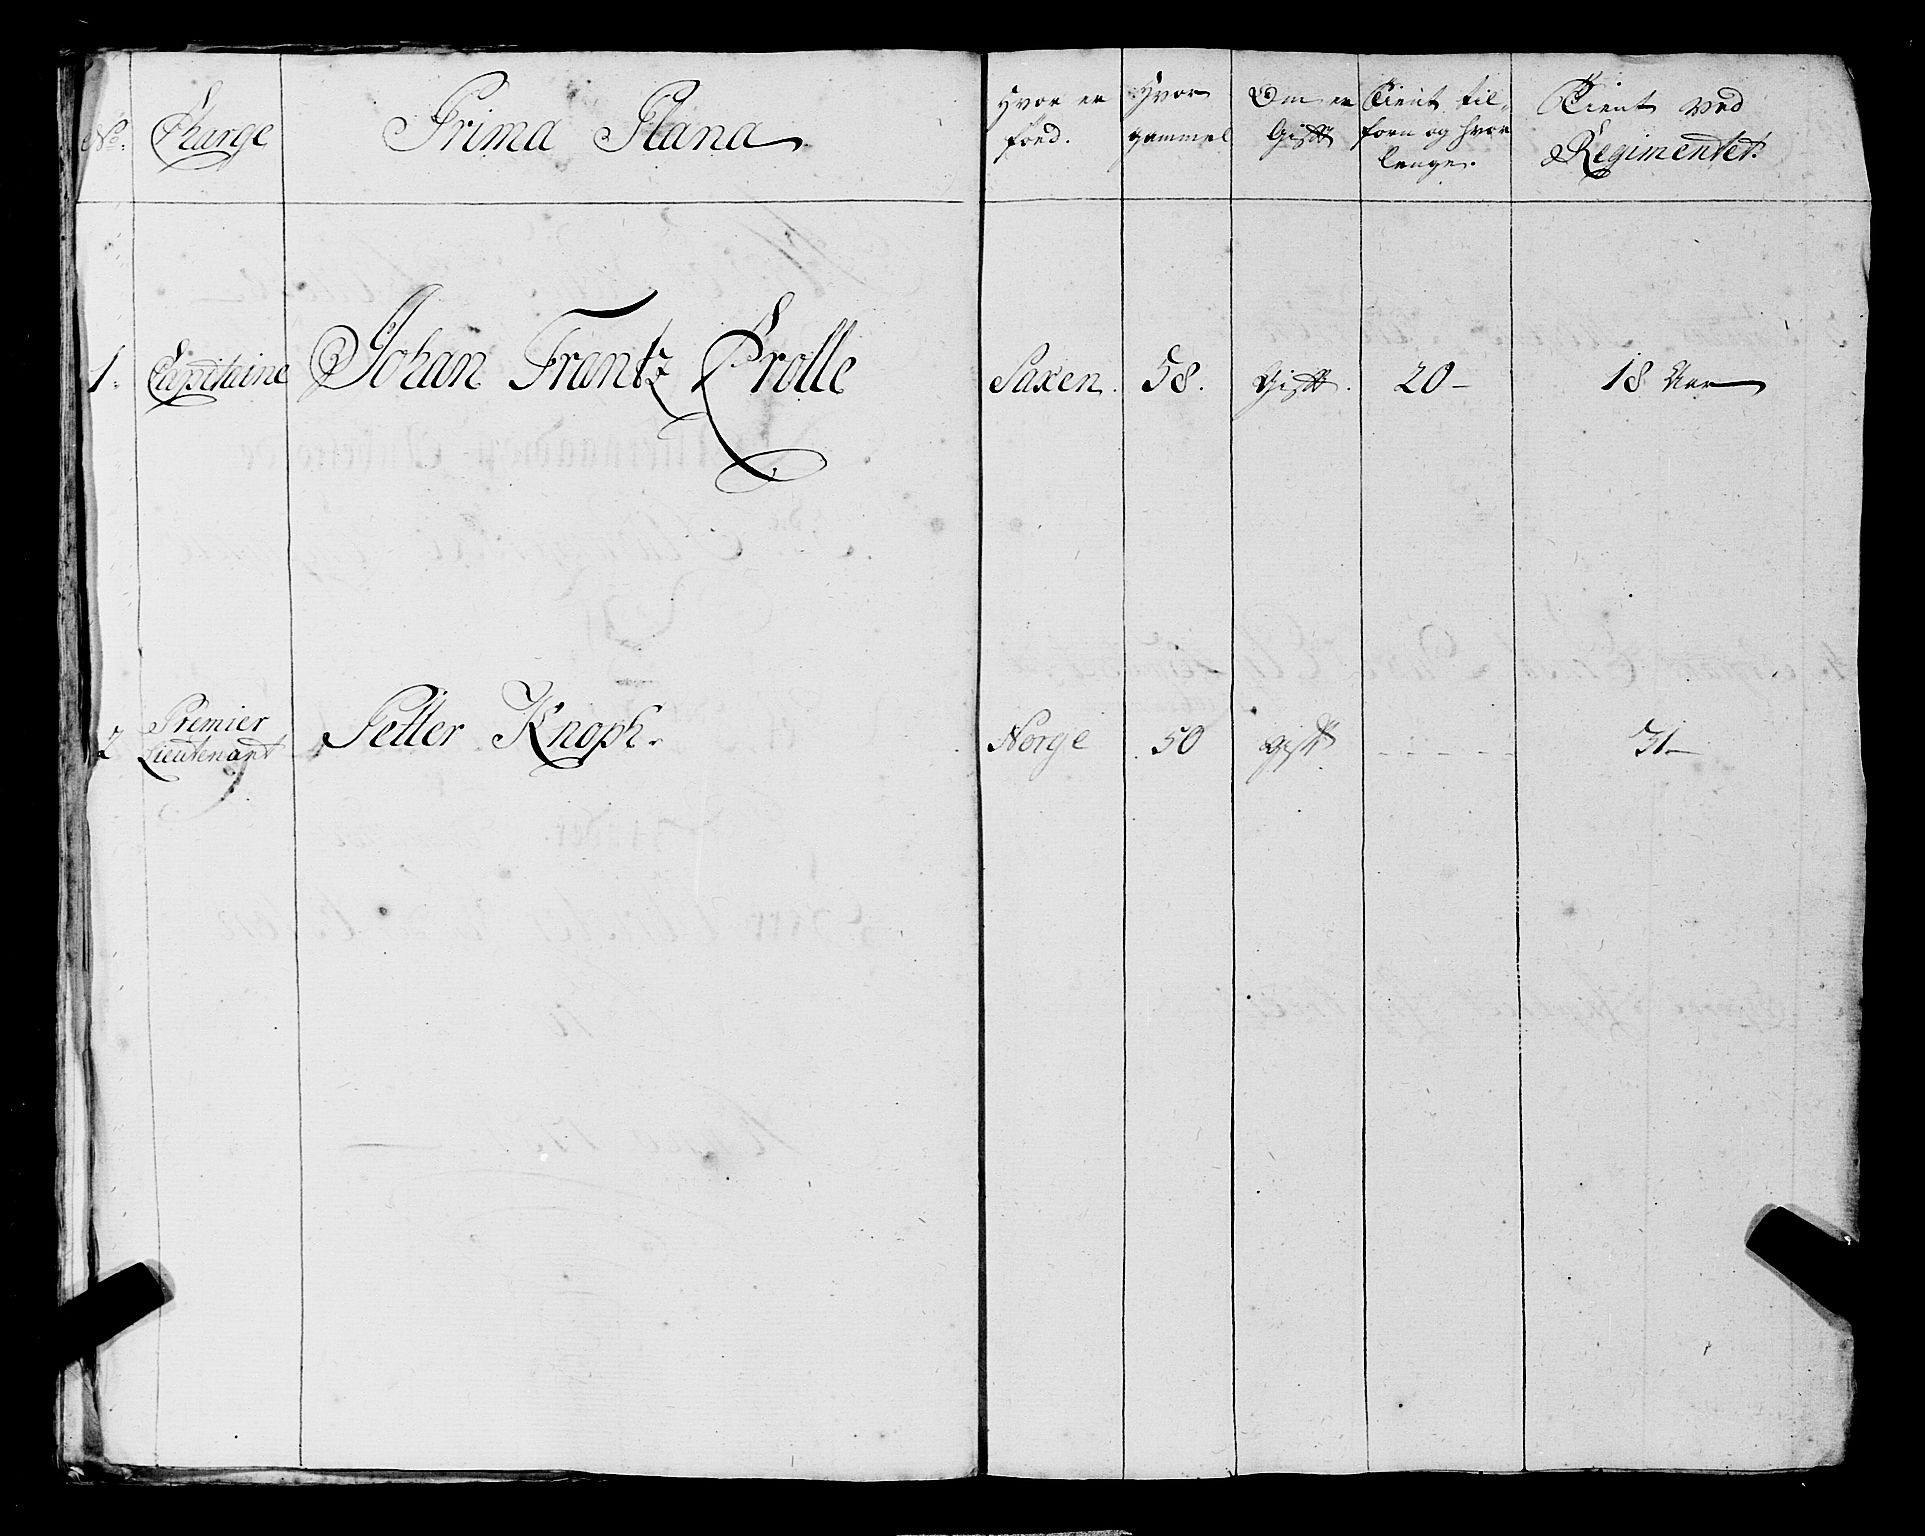 No. Charge Prima Plana Hvor er Hvor Om er Tient til-
föed. gammel Gift forn og hvor Tient ved
lenge. Regimentet.
1. Capitaine Johan Frantz Brolle Saxen. 58. Gift. 20 - 18 Aar
2 Premier
Lieutenant Petter Knoph. Norge 50 gift - - - - 31 -